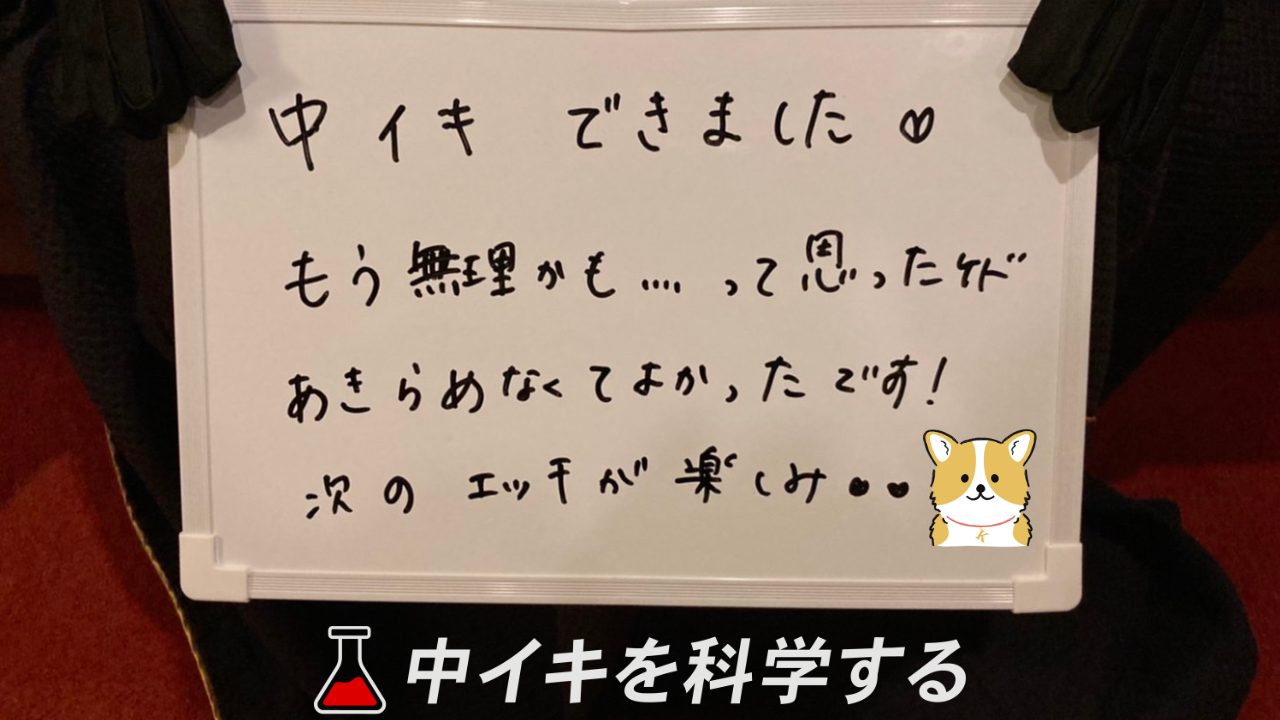 中イキ できました♡
もう無理かも....って思ったケド
あきらめなくてよかったです!
次のエッチが楽しみ♥♥
K
中イキを科学する